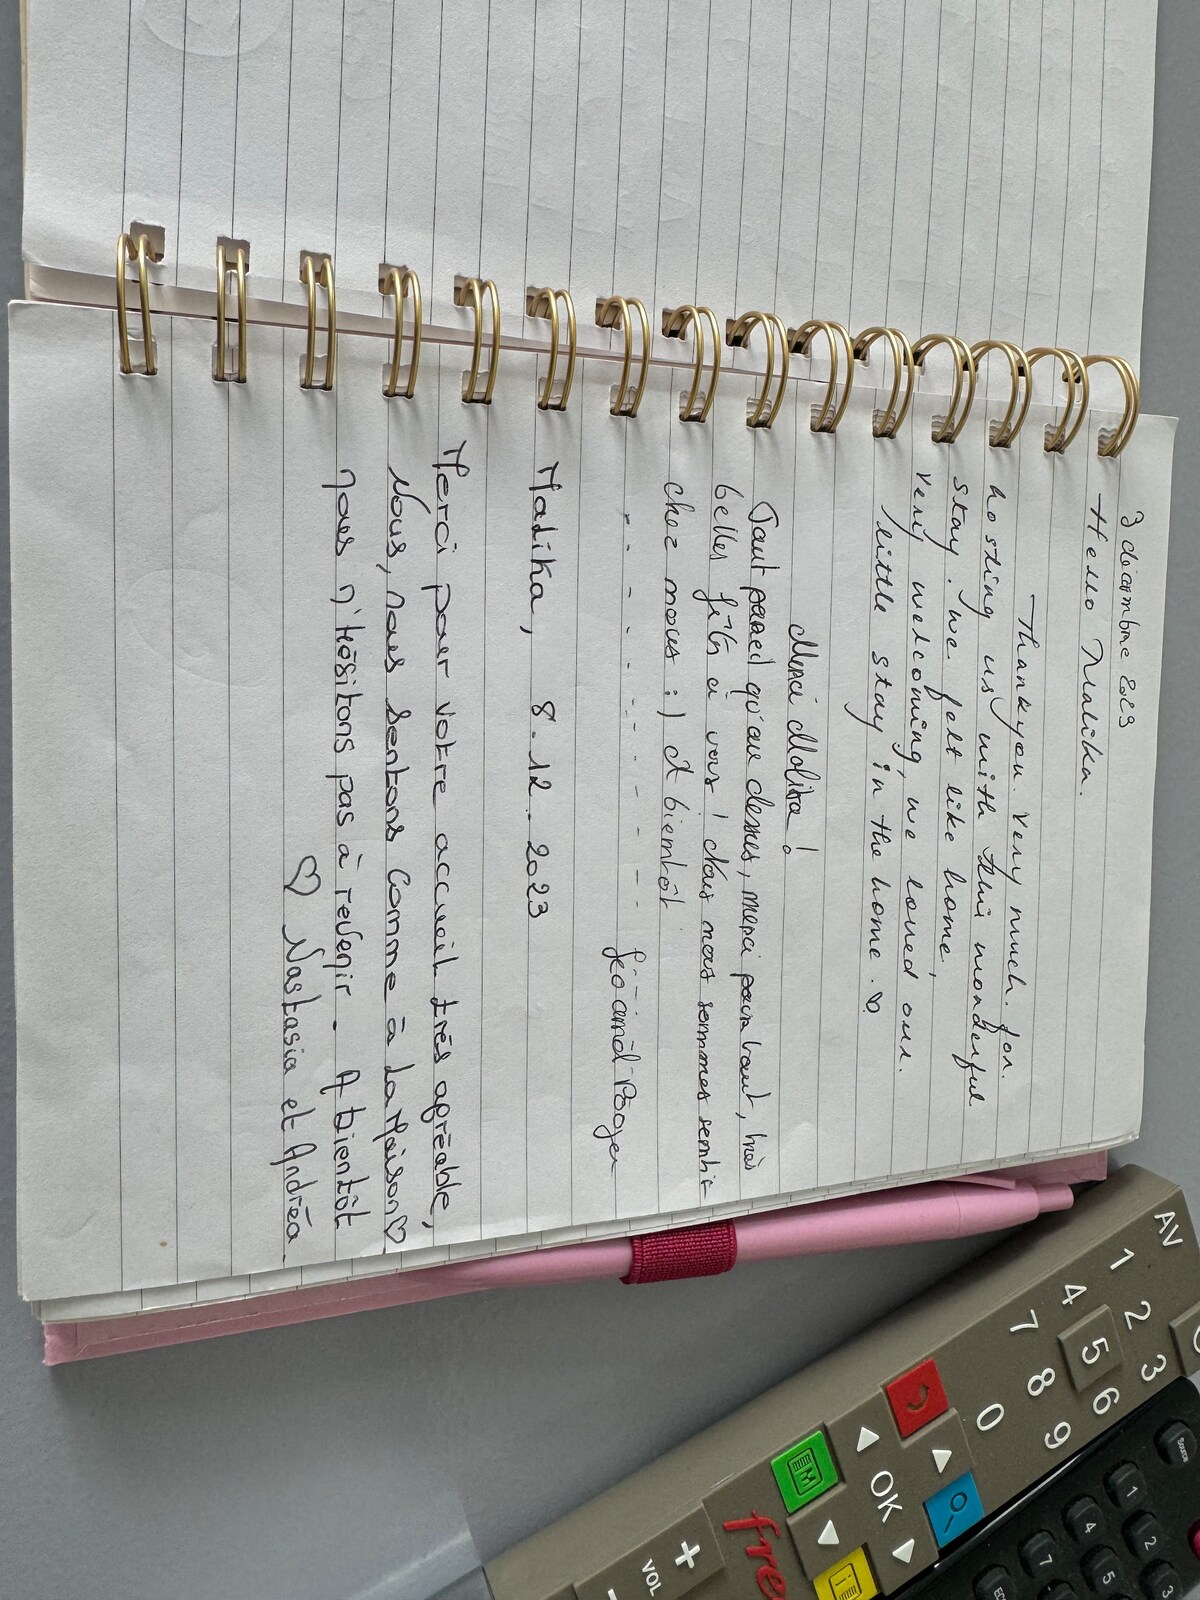 3 décembre 2023
Hello Malika.
Thank you. Very much. for.
hosting us with this wonderful
stay. We felt like home,
very welcoming, we loved our.
little stay in the home. ♡
Merci Malika !
Tout pareil qu'au dessus, merci pour tout, très
belles fêtes à vous ! Nous nous sommes sentis
chez nous :) A bientôt.
Malika, 8.12.2023
Merci pour votre accueil très agréable,
Nous, nous sentons comme à La Maison ♡
nous n'hésitons pas à revenir - A bientôt
♡ Nastasia et Andréa
AV
1 2 3
4 5 6
7 8 9
0
OK
M
i
+
VOL
-
fre
Source
1 2 3
4 5
7